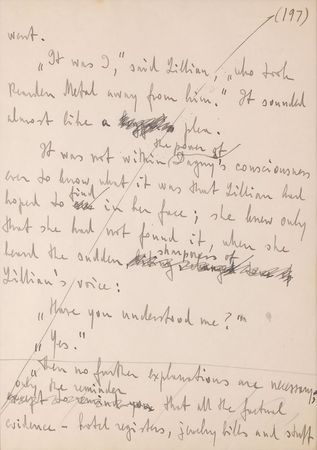 (197)
want.
"It was I," said Lillian, "who took
Rearden Metal away from him." It sounded
almost like a plea.
the power of
It was not within Dagny's consciousness
ever to know what it was that Lillian had
hoped to find in her face; she knew only
that she had not found it, when she
heard the sudden sharpness of
Lillian's voice:
"Have you understood me?"
"Yes."
"Then no further explanations are necessary;
only the reminder
except to remind you that all the factual
evidence – hotel registers, jewelry bills and stuff